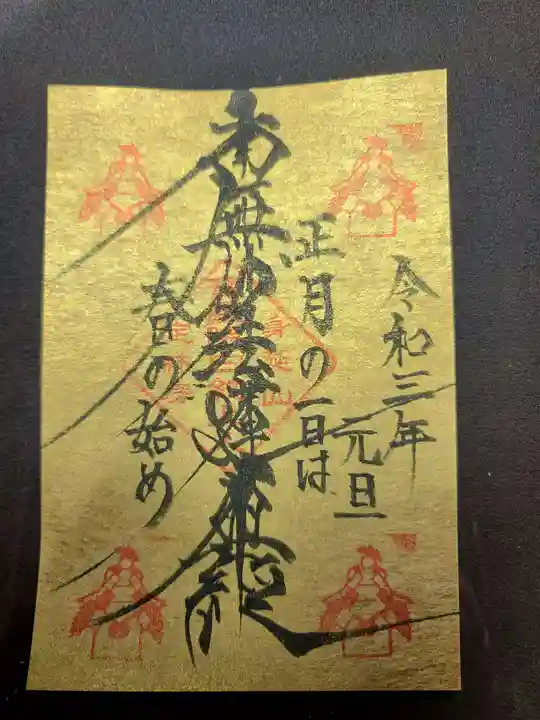 令和三年
元旦
正月の一日は
南無妙法蓮華経
春日の始め
身延山